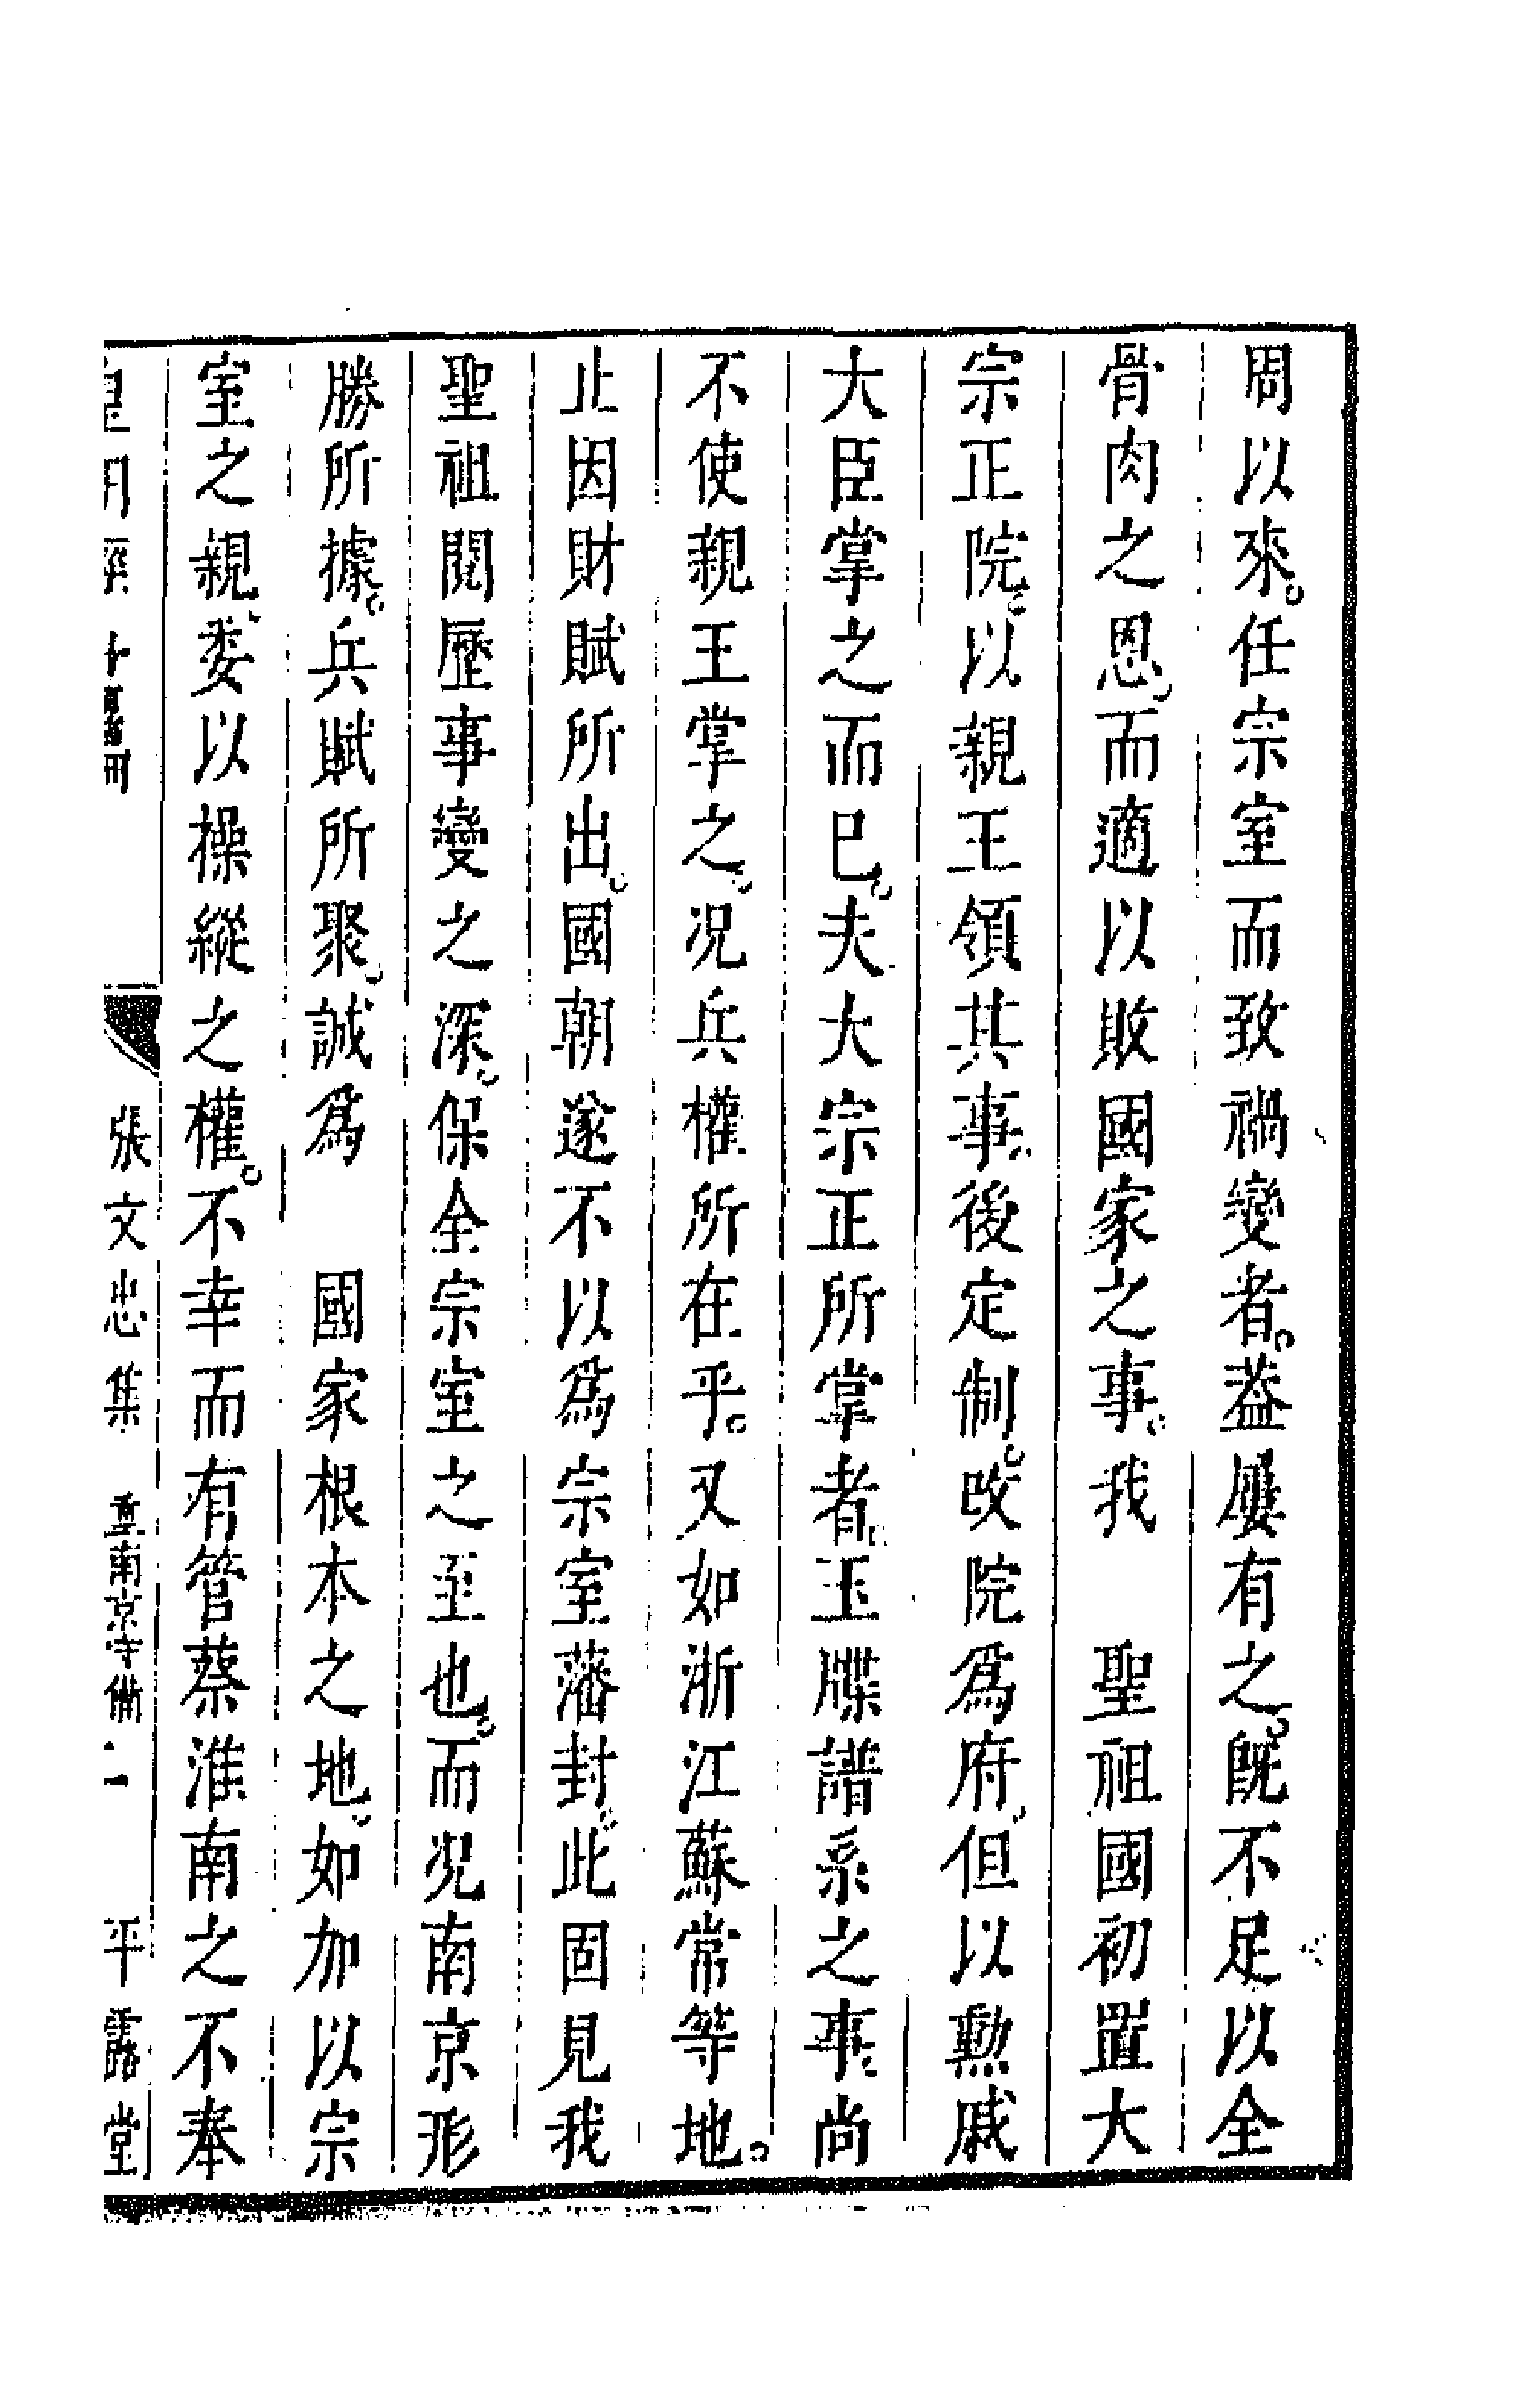 周以來。任宗室而致禍變者。葢屢有之。旣不足以全
骨肉之恩。而適以敗國家之事。我　聖祖國初置大
宗正院。以親王領其事。後定制。改院爲府。但以勲戚
大臣掌之而已。夫大宗正所掌者。玉牒譜系之事。尚
不使親王掌之。况兵權所在乎。又如浙江蘇常等地。
止因財賦所出。國朝遂不以爲宗室藩封。此固見我
聖祖閱歷事變之深。保全宗室之至也。而况南京形
勝所據。兵賦所聚。誠爲　國家根本之地。如加以宗
室之親、委以操縱之權。不幸而有管蔡淮南之不奉
皇明經
張文忠集　重南京守備　二　平露堂